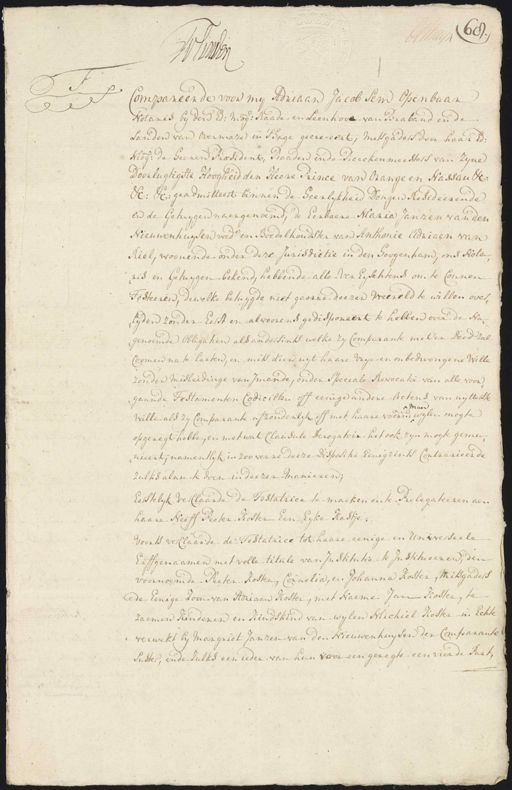 68
F
Compareerde voor my Adriaan Jacob Sem Openbaar
Notaris by de Ed: Mog: Raade en Leenhove van Braband en de
Landen van Overmaze in s'Hage geeresort, mitsgaders den haar Ed:
Mog: de Heeren President, Raaden ende Reekenmeesters van zyne
Doorlugtigste Hoogheid den Heere Prince van Orange en Nassau &c
&c: &c: geadmitteert binnen de Heerlykheid Dongen Resideerende
en de Getuygen naergenoemd, de Eerbaare Maria Janzen van den
Nieuwenhuysen wed: en Boedelhoudster van Anthonie Adriaen van
Riel, woonende onder deze Jurisdictie in den Hoogenham, ons Nota-
ris en Getuygen bekend, hebbende alle Vereyschtens om te connen
Testeeren, dewelke betuygde niet gaerne deezer Wereld te willen over-
lyden zonder Eerst en alvoorens gedisponeert te hebben over de
goederen die zy Comparante met er Dood zal
coomen na te laaten, en mits dien uyt haare vrye en onbedwongen Wille
zonder misleydinge van Jmande, onder speciale Revocatie van alle voor-
gaande Testamenten Codicillen off eenige andere Actens van uytterste
Wille als zy Comparante afzonderlyk off met haare voorn: man wylen mogte
opgeregt hebben, en met wat Clausule derogatoir het ook zyn mogt gemu-
nieert, namentlyk in zoo verre deeze dispositie Eenigzints Contrarieerde
zulks alzu te doen in deezer Manieren;
Eerstelyk verclaarde de Testatrice te maaken ende Prelegateeren aen
haare Neeff Peeter Koster Een Eyke Kastje.
Voorts verclaarde de Testatrice tot haare eenige en Universeele
Erffgenaamen met volle titule van Institutie te Institueeren, den
voornoemde Peeter Koster, Cornelia, en Johanna Koster, Mitsgaders
de Eenige Zoon van Adriaan Koster, met Naeme Jan Koster, te
zaemen Kinderen en Kindskind van wylen Michiel Koster in Echte
verwekt by Margriet Janzen van den Nieuwenhuysen der Comparante
Suster, ende zulks een ieder van hun voor een geregte een vierde Part,